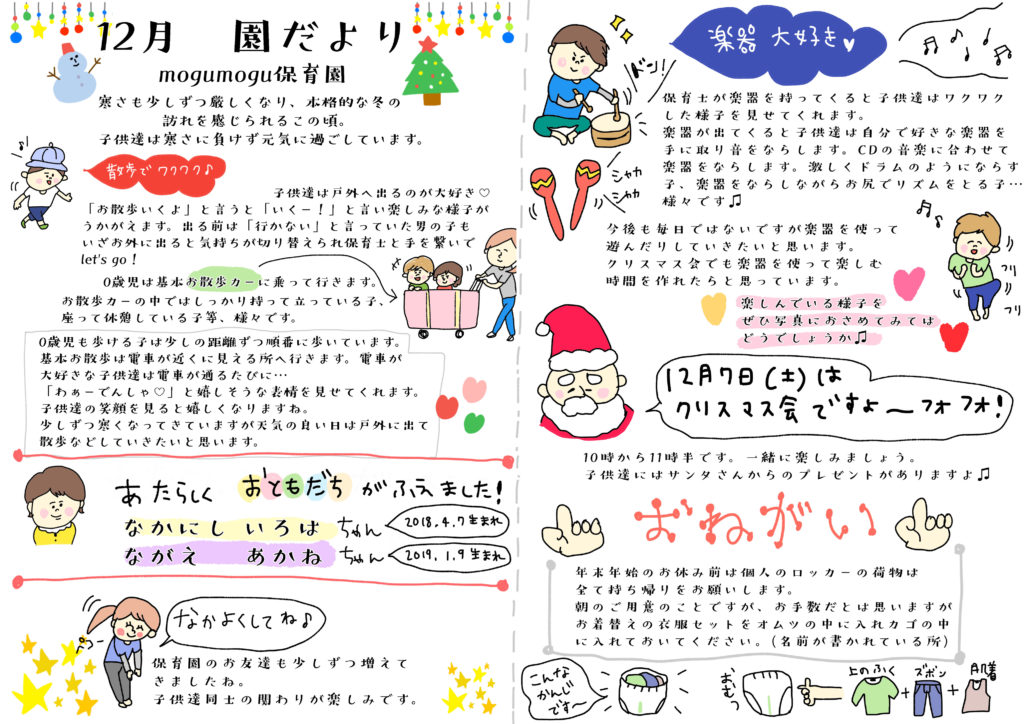 12月 園だより
mogumogu保育園
寒さも少しずつ厳しくなり、本格的な冬の
訪れを感じられるこの頃。
子供達は寒さに負けず元気に過ごしています。
散歩でワクワク♪
子供達は戸外へ出るのが大好き♡
「お散歩いくよ」と言うと「いくー!」と言い楽しみな様子が
うかがえます。出る前は「行かない」と言っていた男の子も
いざお外に出ると気持ちが切り替えられ保育士と手を繋いで
let's go!
0歳児は基本お散歩カーに乗って行きます。
お散歩カーの中ではしっかり持って立っている子、
座って休憩している子等、様々です。
0歳児も歩ける子は少しの距離ずつ順番に歩いています。
基本お散歩は電車が近くに見える所へ行きます。電車が
大好きな子供達は電車が通るたびに…
「わぁーでんしゃ♡」と嬉しそうな表情を見せてくれます。
子供達の笑顔を見ると嬉しくなりますね。
少しずつ寒くなってきていますが天気の良い日は戸外に出て
散歩などしていきたいと思います。
あたらしく おともだち がふえました!
なかにし いろは ちゃん 2018.4.7生まれ
ながえ あかね ちゃん 2019.1.9生まれ
なかよくしてね♪
ペコー
保育園のお友達も少しずつ増えて
きましたね。
子供達同士の関わりが楽しみです。
楽器 大好き♥
ドン!
保育士が楽器を持ってくると子供達はワクワク
した様子を見せてくれます。
楽器が出てくると子供達は自分で好きな楽器を
手に取り音をならします。CDの音楽に合わせて
楽器をならします。激しくドラムのようにならす
子、楽器をならしながらお尻でリズムをとる子…
様々です♫
シャカ
シャカ
今後も毎日ではないですが楽器を使って
遊んだりしていきたいと思います。
クリスマス会でも楽器を使って楽しむ
時間を作れたらと思っています。
フリ
フリ
楽しんでいる様子を
ぜひ写真におさめてみては
どうでしょうか♫
12月7日(土)は
クリスマス会ですよ〜フォフォ!
10時から11時半です。一緒に楽しみましょう。
子供達にはサンタさんからのプレゼントがありますよ♫
おねがい
年末年始のお休み前は個人のロッカーの荷物は
全て持ち帰りをお願いします。
朝のご用意のことですが、お手数だとは思いますが
お着替えの衣服セットをオムツの中に入れカゴの中
に入れておいてください。(名前が書かれている所)
こんな
かんじ
です〜
おむつ
上のふく
+
ズボン
+
肌着